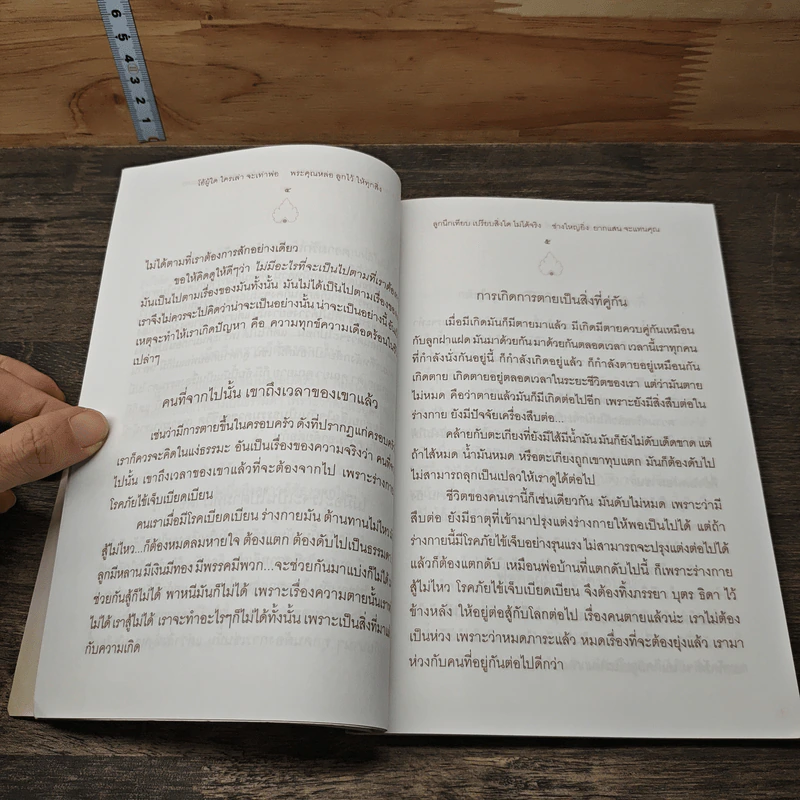 6 5 4 3 2 1
ใช้ผู้ใด ใครเล่า จะเท่าพ่อ พระคุณหล่อ ลูกไว้ ให้ทุกสิ่ง
๔
ไม่ได้ตามที่เราต้องการสักอย่างเดียว
ขอให้คิดดูให้ดีๆว่า ไม่มีอะไรที่จะเป็นไปตามที่เราต้อง
มันเป็นไปตามเรื่องของมันทั้งนั้น มันไม่ได้เป็นไปตามเรื่องของ
เราจึงไม่ควรจะไปคิดว่าน่าจะเป็นอย่างนั้น น่าจะเป็นอย่างนี้
เหตุจะทำให้เราเกิดปัญหา คือ ความทุกข์ความเดือดร้อน
เปล่าๆ
คนที่จากไปนั้น เขาถึงเวลาของเขาแล้ว
เช่นว่ามีการตายขึ้นในครอบครัว ดังที่ปรากฏแก่ครอบครัว
เราก็ควรจะคิดในแง่ธรรมะ อันเป็นเรื่องของความจริงว่า คนที่
ไปนั้น เขาถึงเวลาของเขาแล้วที่จะต้องจากไป เพราะร่างกาย
โรคภัยไข้เจ็บเบียดเบียน
คนเราเมื่อมีโรคเบียดเบียน ร่างกายมัน ต้านทานไม่ไหว
สู้ไม่ไหว...ก็ต้องหมดลมหายใจ ต้องแตก ต้องดับไปเป็นธรรมดา
ลูกมีหลาน มีเงินมีทอง มีพรรคมีพวก...จะช่วยกันมาแบ่งก็ไม่ได้
ช่วยกันสู้ก็ไม่ได้ พาหนีมันก็ไม่ได้ เพราะเรื่องความตายนั้นเรา
ไม่ได้เราสู้ไม่ได้ เราจะทำอะไรๆก็ไม่ได้ทั้งนั้น เพราะเป็นสิ่งที่มา
กับความเกิด
ลูกนึกเทียบ เปรียบสิ่งใด ไม่ได้จริง ช่างใหญ่ยิ่ง ยากแสน จะแทนคุณ
๕
การเกิดการตายเป็นสิ่งที่คู่กัน
เมื่อมีเกิดมันก็มีตายมาแล้ว มีเกิดมีตายควบคู่กันเหมือน
กับลูกฝาแฝด มันมาด้วยกัน มาด้วยกันตลอดเวลา เวลานี้เราทุกคน
ที่กำลังนั่งกันอยู่นี้ ก็กำลังเกิดอยู่แล้ว ก็กำลังตายอยู่เหมือนกัน
เกิดตาย เกิดตายอยู่ตลอดเวลาในระยะชีวิตของเรา แต่ว่ามันตาย
ไม่หมด คือว่าตายแล้วมันก็มีเกิดต่อไปอีก เพราะยังมีสิ่งสืบต่อใน
ร่างกาย ยังมีปัจจัยเครื่องสืบต่อ...
คล้ายกับตะเกียงที่ยังมีไส้มีน้ำมัน มันก็ยังไม่ดับเด็ดขาด แต่
ถ้าไส้หมด น้ำมันหมด หรือตะเกียงถูกเขาทุบแตก มันก็ต้องดับไป
ไม่สามารถลุกเป็นเปลวให้เราดูได้ต่อไป
ชีวิตของคนเรานี้ก็เช่นเดียวกัน มันดับไม่หมด เพราะว่ามี
สืบต่อ ยังมีธาตุที่เข้ามาปรุงแต่งร่างกายให้พอเป็นไปได้ แต่ถ้า
ร่างกายนี้มีโรคภัยไข้เจ็บอย่างรุนแรง ไม่สามารถจะปรุงแต่งต่อไปได้
แล้วก็ต้องแตกดับ เหมือนพ่อบ้านที่แตกดับไปนี้ ก็เพราะร่างกาย
สู้ไม่ไหว โรคภัยไข้เจ็บเบียดเบียน จึงต้องทิ้งภรรยา บุตร ธิดา ไว้
ข้างหลัง ให้อยู่ต่อสู้กับโลกต่อไป เรื่องคนตายแล้วน่ะ เราไม่ต้อง
เป็นห่วง เพราะว่าหมดภาระแล้ว หมดเรื่องที่จะต้องยุ่งแล้ว เรามา
ห่วงกับคนที่อยู่กันต่อไปดีกว่า